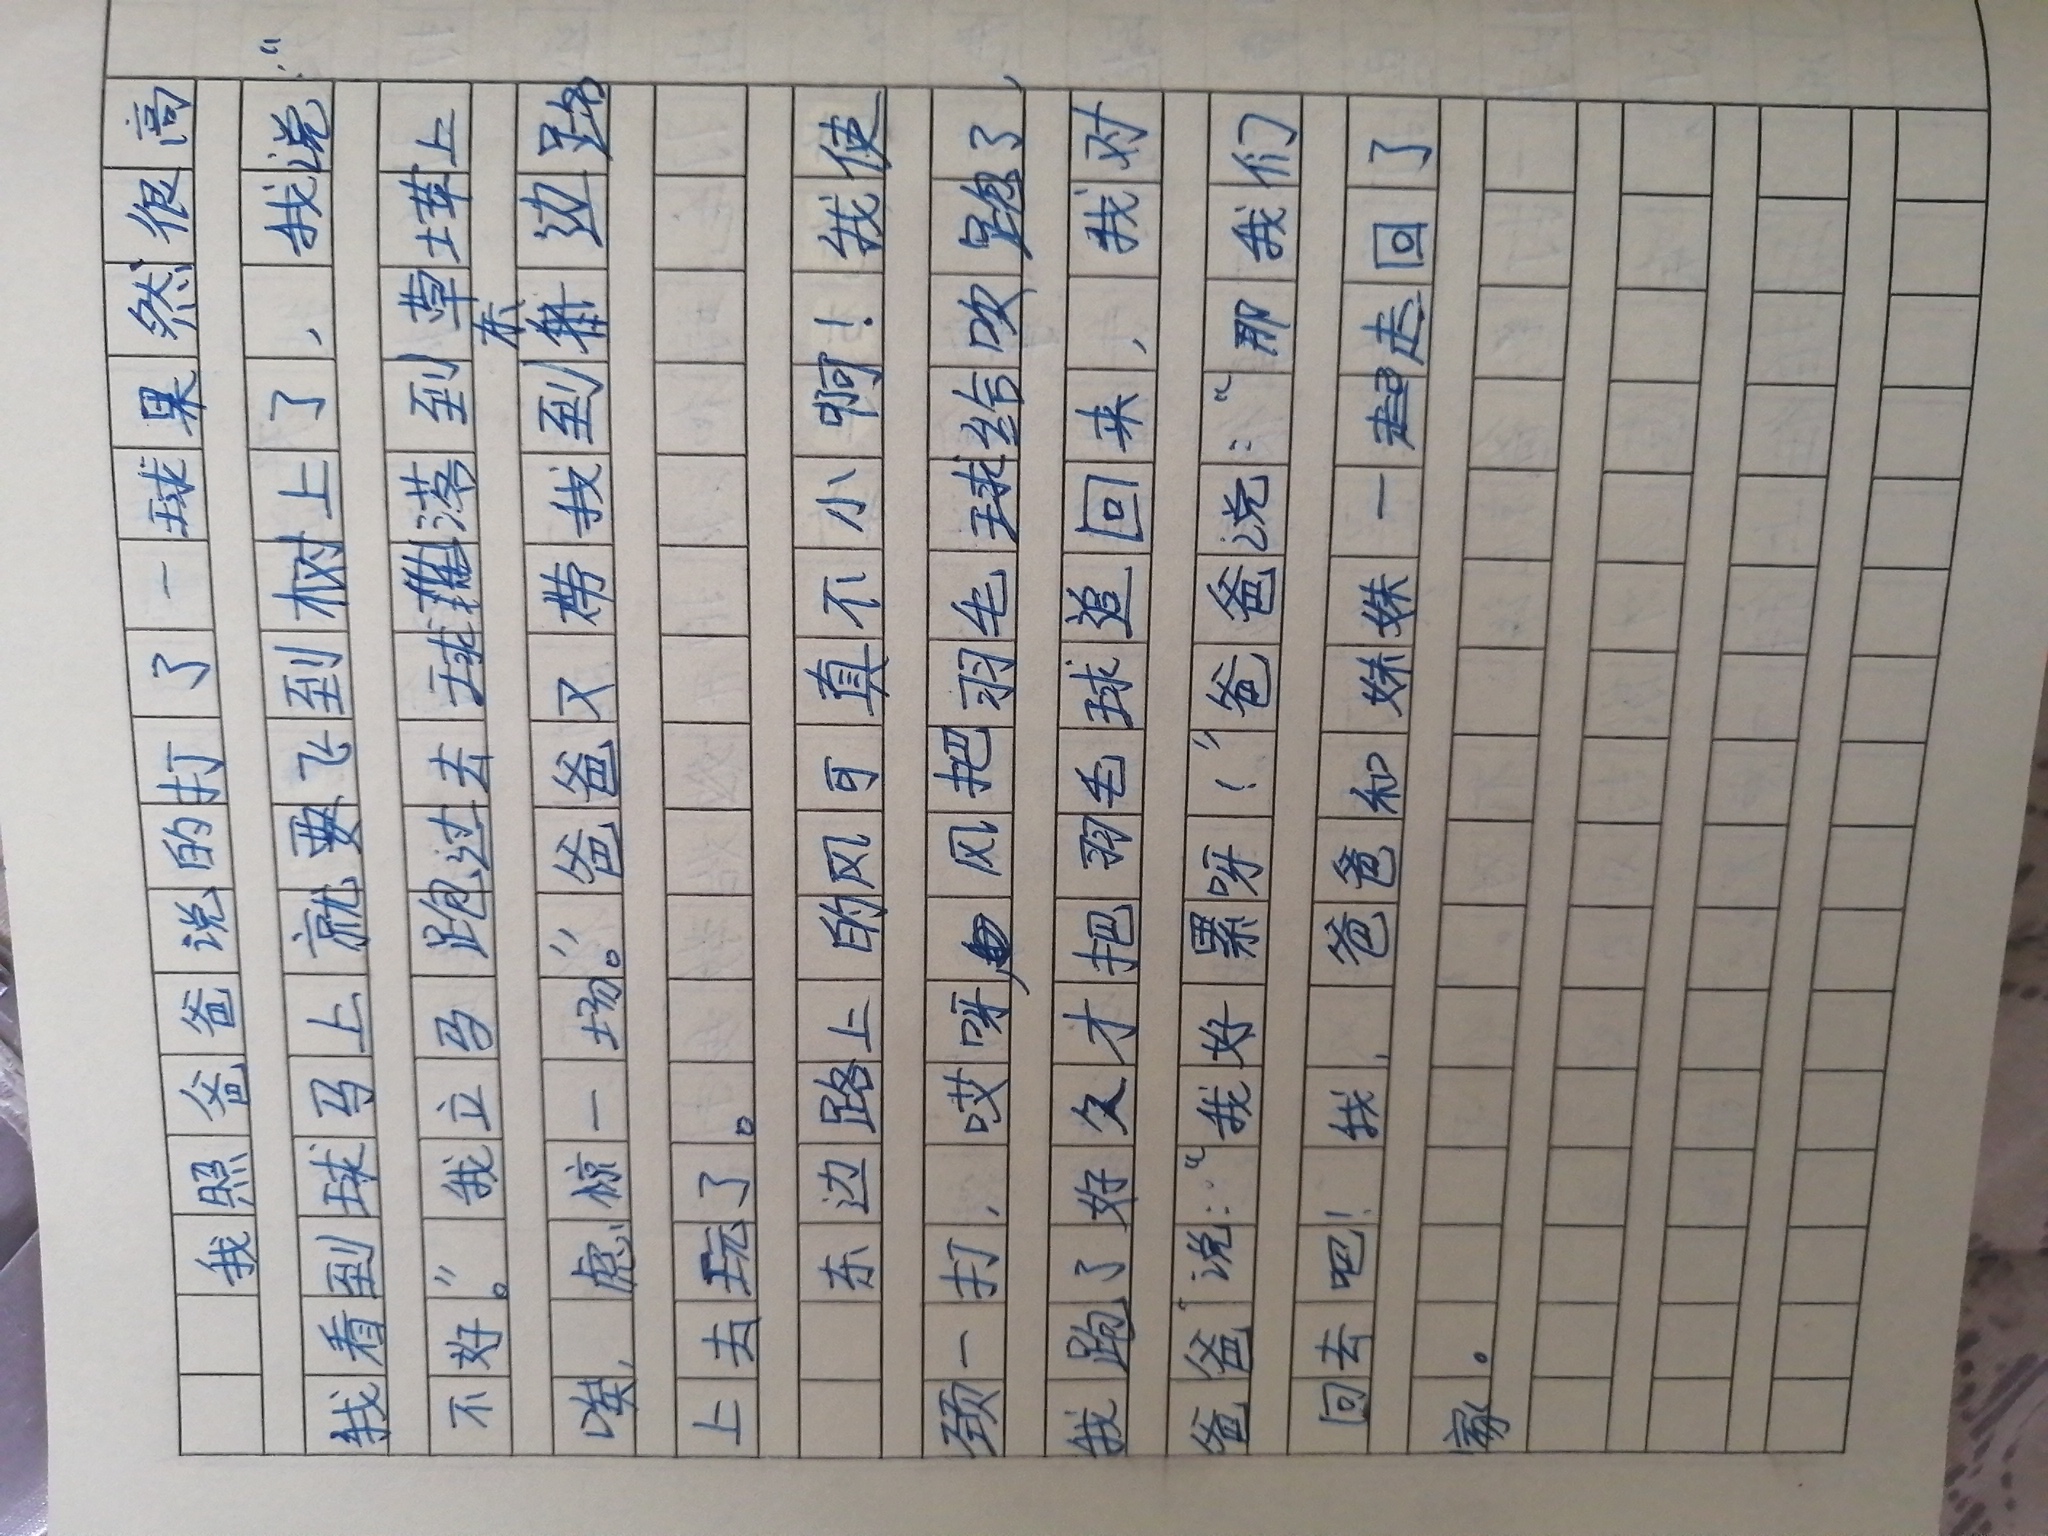 我照爸爸说的打了一球果然很高
我看到球马上就要飞到树上了，我说："
不好。"我立马跑过去球落到草坪上
唉，虑惊一场。"爸爸又带我到东边路
上去玩了。
东边路上的风可真不小啊！我使
颈一打，哎呀，风把羽毛球给吹跑了，
我跑了好久才把羽毛球追回来，我对
爸爸说："我好累呀！"爸爸说："那我们
回去吧！我，爸爸和妹妹一起走回了
家。